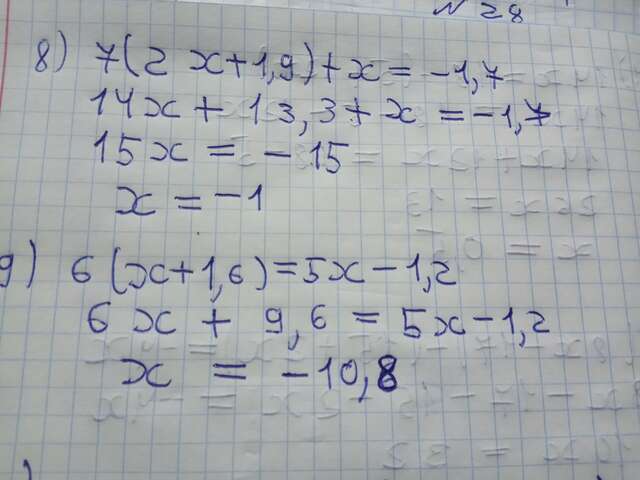 N 28
8) 7(2 x+1,9)+x = -1,7
14x + 13,3+x = -1,7
15x = - 15
x = -1
9) 6(x+1,6)=5x-1,2
6 x + 9,6 = 5x-1,2
x = -10,8
)